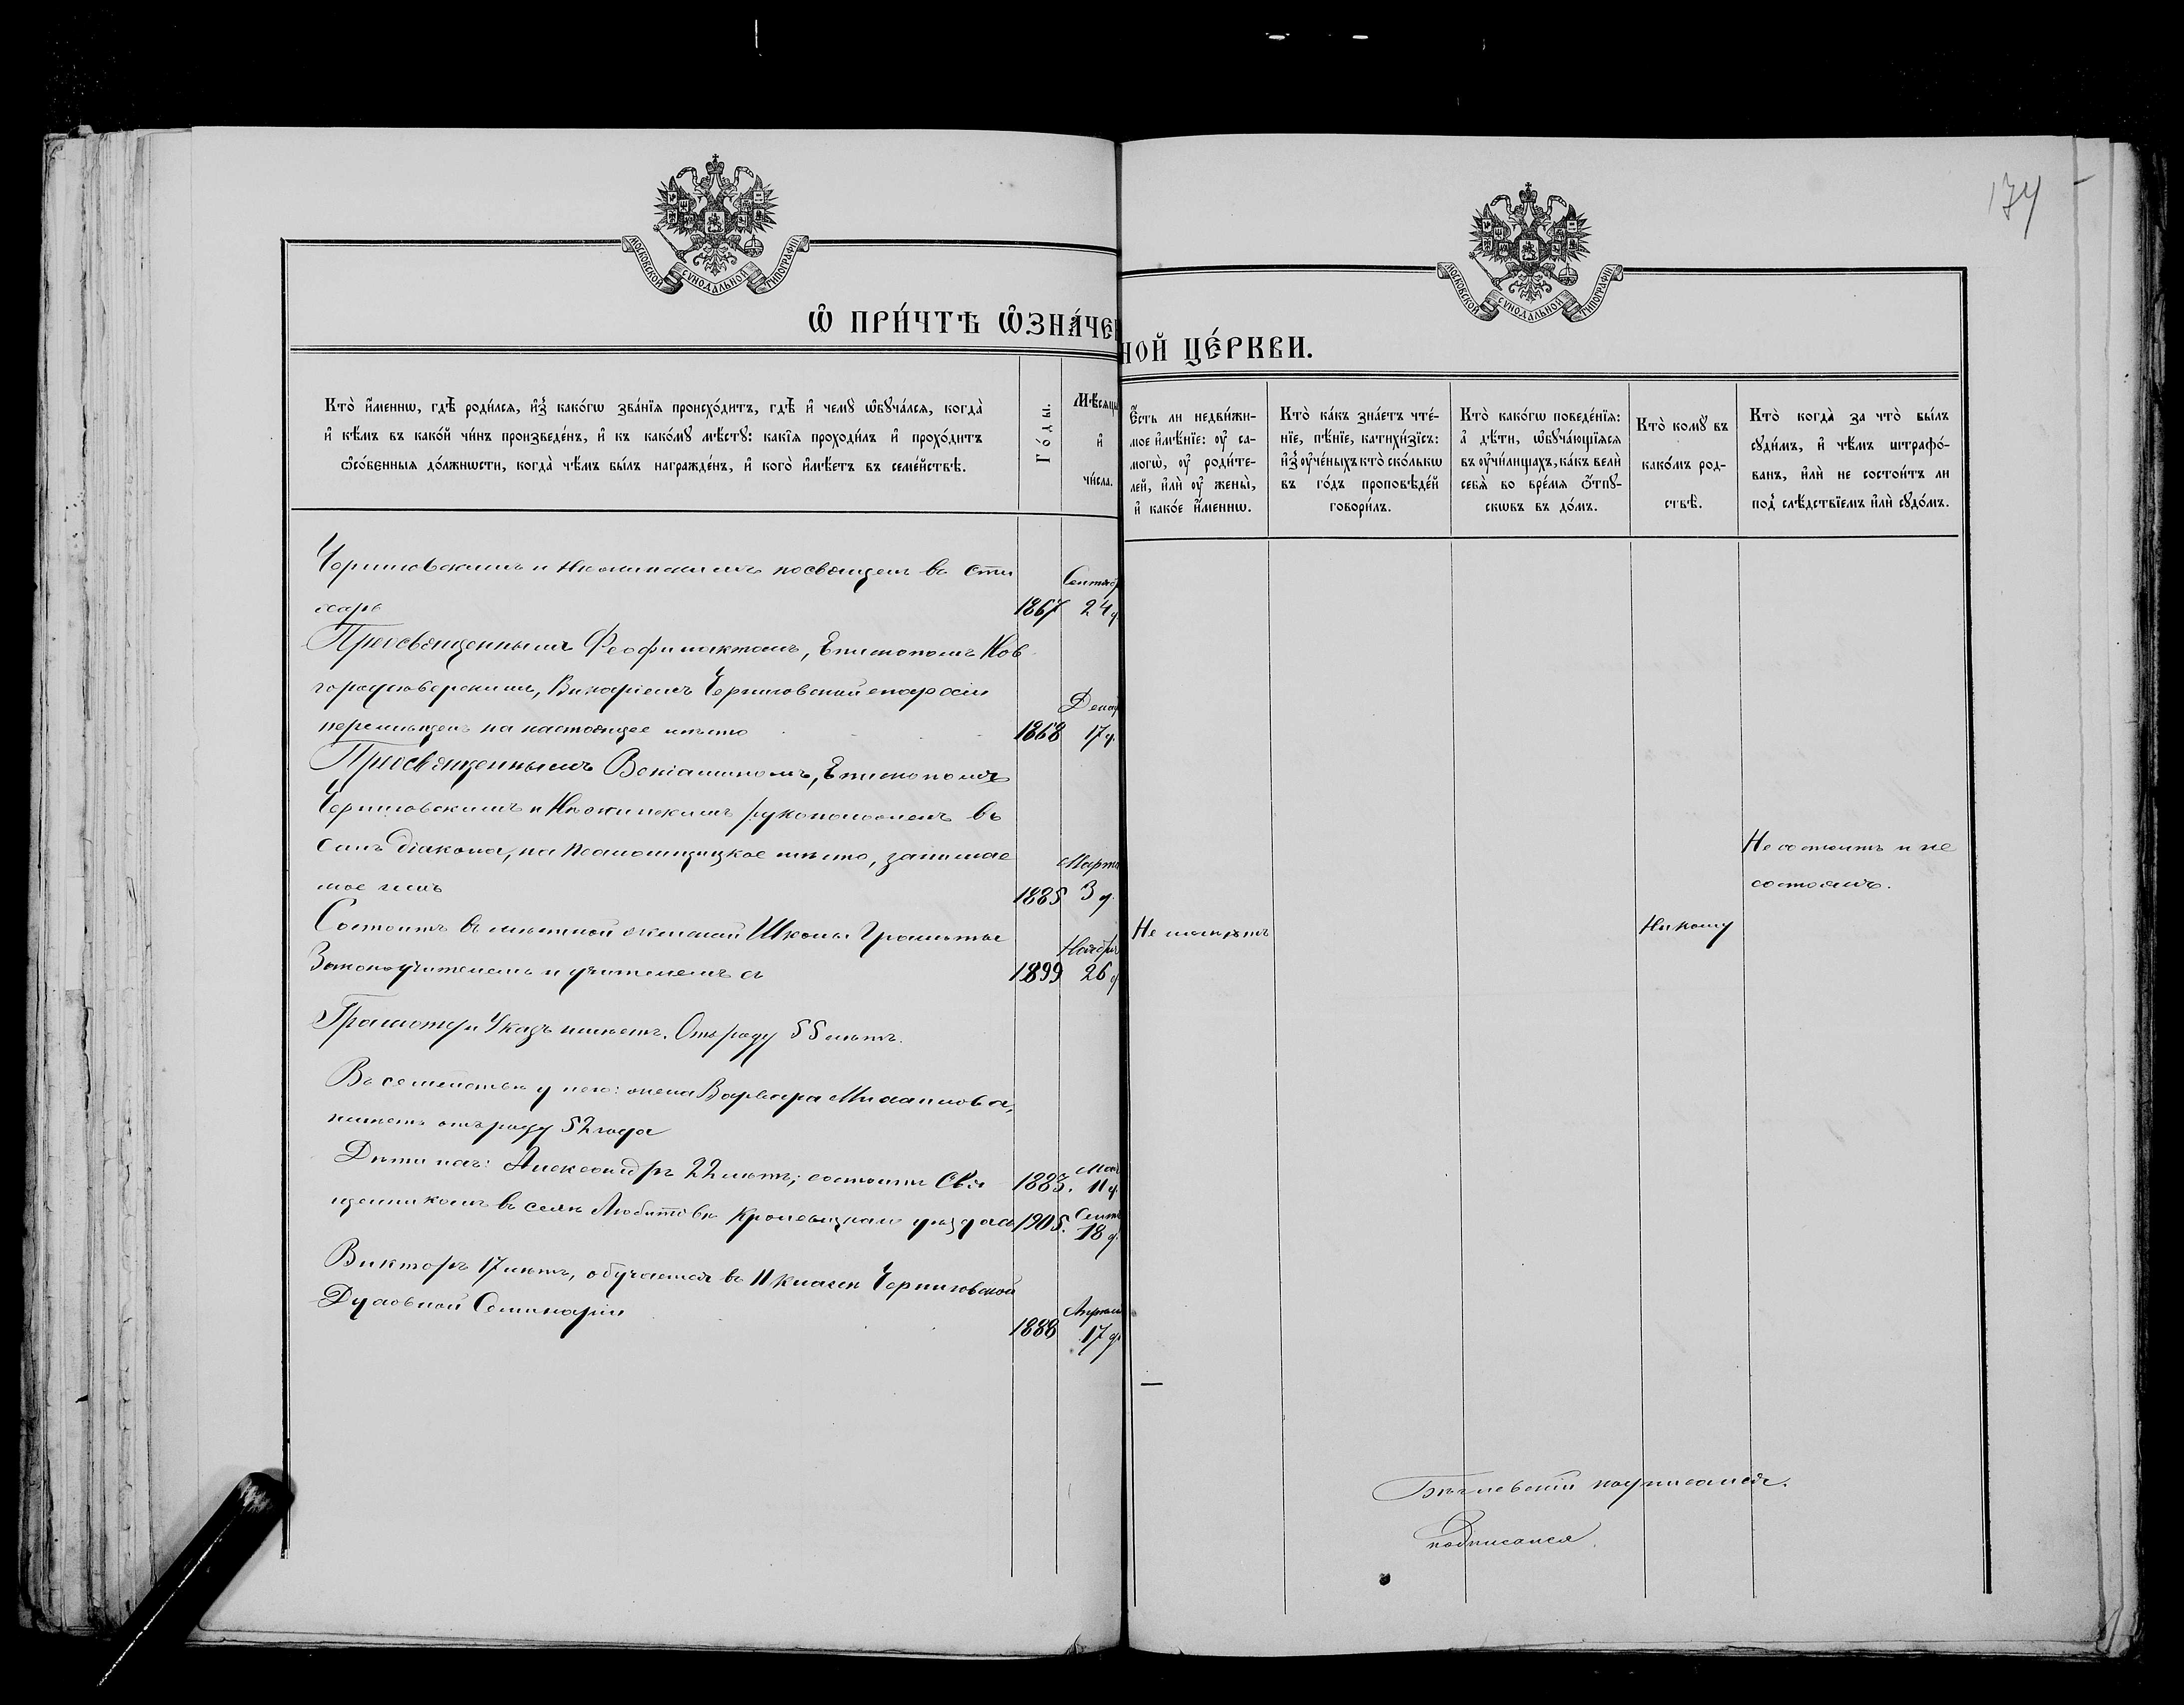 174
МОСКОВСКОЙ СУНОДАЛЬНОЙ ТИПОГРАФІИ
МОСКОВСКОЙ СУНОДАЛЬНОЙ ТИПОГРАФІИ
Ѽ ПРИ́ЧТѢ Ѡ҆ЗНА́ЧЕННОЙ ЦЕ́РКВИ.
Кто̀ и҆́меннѡ, гдѣ̀ роди́лся, и҆з̾ како́гѡ зва́нїя происхо́дитъ, гдѣ̀ и҆ чемꙋ̀ ѡ҆бꙋча́лся, когда̀
и҆ кѣ́мъ въ како́й чи́нъ произведе́нъ, и҆ къ како́мꙋ мѣ́стꙋ: какі̑я проходи́лъ и҆ прохо́дитъ
ѻ҆со́бєнныя до́лжнѡсти, когда̀ чѣ́мъ бы́лъ награжде́нъ, и҆ кого̀ и҆мѣ́етъ въ семе́йствѣ.
Го́ды.
Мѣ́сяцы
и҆
чи́сла.
Є҆́сть ли недви́жи-
мое и҆мѣ́нїе: ᲂу҆ са-
могѡ̀, ᲂу҆ роди́те-
лей, и҆лѝ ᲂу҆ жены̀,
и҆ како́е и҆́меннѡ.
Кто̀ ка́къ зна́етъ чте́-
нїе, пѣ́нїе, катихи́зїсъ:
и҆з̾ ᲂу҆че́ныхъ кто̀ ско́лькѡ
въ го́дъ проповѣ́дей
говори́лъ.
Кто̀ како́гѡ поведе́нїя:
а҆ дѣ́ти, ѡ҆бꙋча́ющїяся
въ ᲂу҆чи́лищахъ, ка́къ велѝ
себѧ̀ во вре́мя ѿпꙋ-
сковъ въ до́мъ.
Кто̀ комꙋ̀ въ
како́мъ род-
ствѣ̀.
Кто̀ когда̀ за что̀ бы́лъ
сꙋди́мъ, и҆ чѣ́мъ штрафо́-
ванъ, и҆лѝ не состои́тъ ли
под̾ слѣ́дствїемъ и҆лѝ сꙋдо́мъ.
Черниговскимъ и Нѣжинскимъ посвященъ въ сти
харь 1867 Сентяб 24 д
Преосвященнымъ Феофилактомъ, Епископомъ Нов
городсѣверскимъ, Викаріемъ Черниговской епархіи
перемѣщенъ на настоящее мѣсто 1868 Декаб 17 д.
Преосвященнымъ Веніаминомъ, Епископомъ
Черниговскимъ и Нѣжинскимъ рукоположенъ въ
санъ діакона, на псаломщицкое мѣсто, занимае
мое имъ 1885 Марта 3 д.
Состоитъ въ мѣстной женской Школѣ Грамоты
Законоучителемъ и учителемъ съ 1899 Ноября 26 д
Грамоту и Указъ имѣетъ. Отъ роду 55 лѣтъ.
Въ семействѣ у него: жена Варвара Михаилова,
имѣетъ отъ роду 52 года
Дѣти ихъ: Александръ 22 лѣтъ; состоитъ Свя 1883. Мая 11 д.
щенникомъ въ селѣ Любитовѣ Кролевецкаго уѣзда съ 1905. Сент 18 д.
Викторъ 17 лѣтъ, обучается въ II классѣ Черниговской
Духовной Семинаріи 1888 Апрѣля 17 д
Не имѣетъ
Никому
Не состоитъ и не
состоялъ.
подписался.
подписался